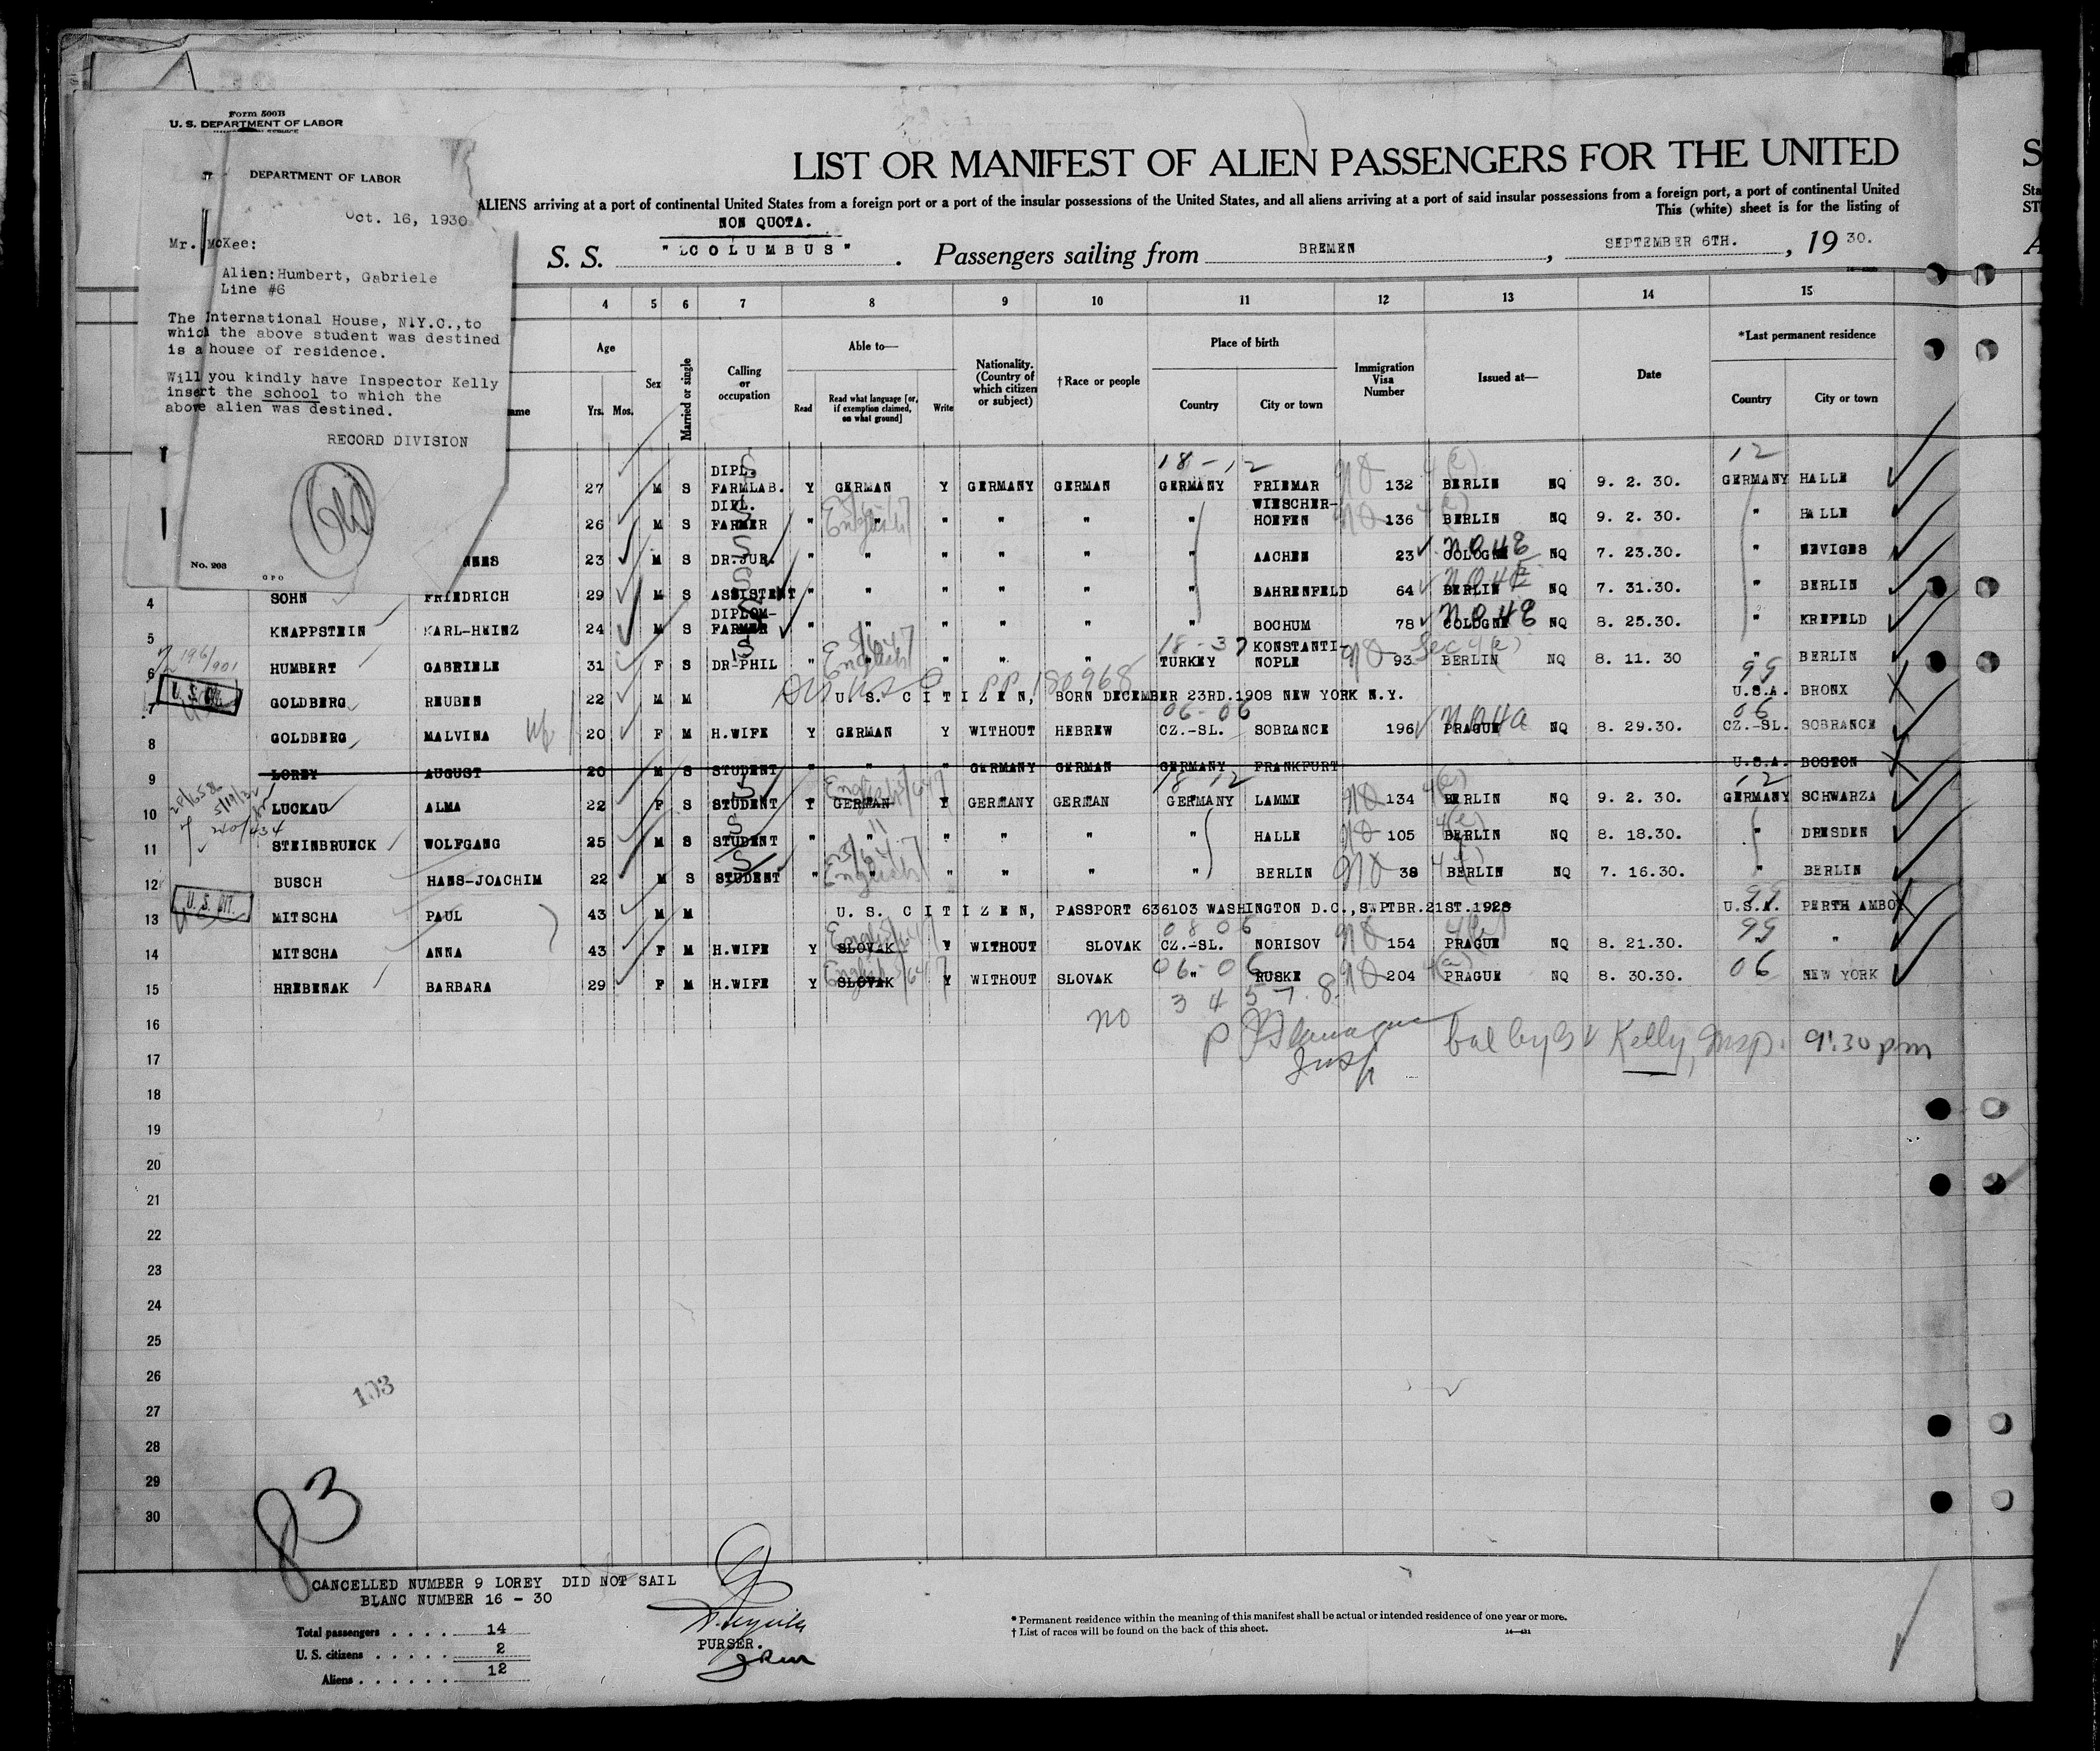 Form 500B
U. S. DEPARTMENT OF LABOR
DEPARTMENT OF LABOR
Oct. 16, 1930
Mr. McKee:
Alien: Humbert, Gabriele
Line #6
The International House, N.Y.C., to
which the above student was destined
is a house of residence.
Will you kindly have Inspector Kelly
insert the school to which the
above alien was destined.
RECORD DIVISION
No. 203
GPO
LIST OR MANIFEST OF ALIEN PASSENGERS FOR THE UNITED
ALIENS arriving at a port of continental United States from a foreign port or a port of the insular possessions of the United States, and all aliens arriving at a port of said insular possessions from a foreign port, a port of continental United
This (white) sheet is for the listing of
NON QUOTA.
S. S. "COLUMBUS". Passengers sailing from BREMEN, SEPTEMBER 6TH., 19 30.
4 5 6 7 8 9 10 11 12 13 14 15
Age Sex Married or single Calling or occupation Able to— Nationality. (Country of which citizen or subject) †Race or people Place of birth Immigration Visa Number Issued at— Date *Last permanent residence
Yrs. Mos. Read Read what language [or, if exemption claimed, on what ground] Write Country City or town Country City or town
18-12 12
27 M S DIPL. FARMLAB. Y GERMAN Y GERMANY GERMAN GERMANY FRIEMAR 132 BERLIN NQ 9. 2. 30. GERMANY HALLE
26 M S DIPL. FARMER " English " " " " WIESCHER-HOEFEN 136 BERLIN NQ 9. 2. 30. " HALLE
23 M S DR.JUR. " " " " " " AACHEN 23 COLOGNE NQ 7. 23.30. " NEVIGES
4 SOHN FRIEDRICH 29 M S ASSISTENT " " " " " " BAHRENFELD 64 BERLIN NQ 7. 31.30. " BERLIN
5 KNAPPSTEIN KARL-HEINZ 24 M S DIPLOM-FARMER " " " " " " BOCHUM 78 COLOGNE NQ 8. 25.30. " KREFELD
6 HUMBERT GABRIELE 31 F S DR-PHIL " English " " " 18-37 TURKEY KONSTANTI-NOPLE 93 Sec 4(e) BERLIN NQ 8. 11. 30 " BERLIN
7 GOLDBERG REUBEN 22 M M U. S. CITIZEN, PP 180968 BORN DECEMBER 23RD.1908 NEW YORK N.Y. 99 U.S.A. BRONX
8 GOLDBERG MALVINA 20 F M H.WIFE Y GERMAN Y WITHOUT HEBREW 06-06 CZ.-SL. SOBRANCE 196 PRAGUE NQ 8. 29.30. 06 CZ.-SL. SOBRANCE
9 LOREY AUGUST 20 M S STUDENT " " " GERMANY GERMAN GERMANY FRANKFURT U.S.A. BOSTON
10 LUCKAU ALMA 22 F S STUDENT Y GERMAN English Y GERMANY GERMAN 18 12 GERMANY LAMME 134 4(e) BERLIN NQ 9. 2. 30. 12 GERMANY SCHWARZA
11 STEINBRUECK WOLFGANG 25 M S STUDENT " " " " " " HALLE 105 4(e) BERLIN NQ 8. 18.30. " DRESDEN
12 BUSCH HANS-JOACHIM 22 M S STUDENT " English " " " " BERLIN 38 BERLIN NQ 7. 16.30. " BERLIN
U. S. CIT.
13 MITSCHA PAUL 43 M M U. S. CITIZEN, PASSPORT 636103 WASHINGTON D.C., SWPTBR.21ST.1928 99 U.S.A. PERTH AMBOY
14 MITSCHA ANNA 43 F M H.WIFE Y SLOVAK English Y WITHOUT SLOVAK 08 06 CZ.-SL. NORISOV 154 PRAGUE NQ 8. 21.30. 99 "
15 HREBENAK BARBARA 29 F M H.WIFE Y SLOVAK English Y WITHOUT SLOVAK 06-06 " RUSKE 204 4(a) PRAGUE NQ 8. 30.30. 06 NEW YORK
3 4 5 7. 8.
16 no
Insp
bal by Kelly, Insp. 9:30 pm
17
18
19
20
21
22
23
24
25
26
103
27
28
29
30
83
CANCELLED NUMBER 9 LOREY DID NOT SAIL
BLANC NUMBER 16 - 30
Total passengers . . . . 14
U. S. citizens . . . . . 2
Aliens . . . . . . 12
PURSER.
* Permanent residence within the meaning of this manifest shall be actual or intended residence of one year or more.
† List of races will be found on the back of this sheet.